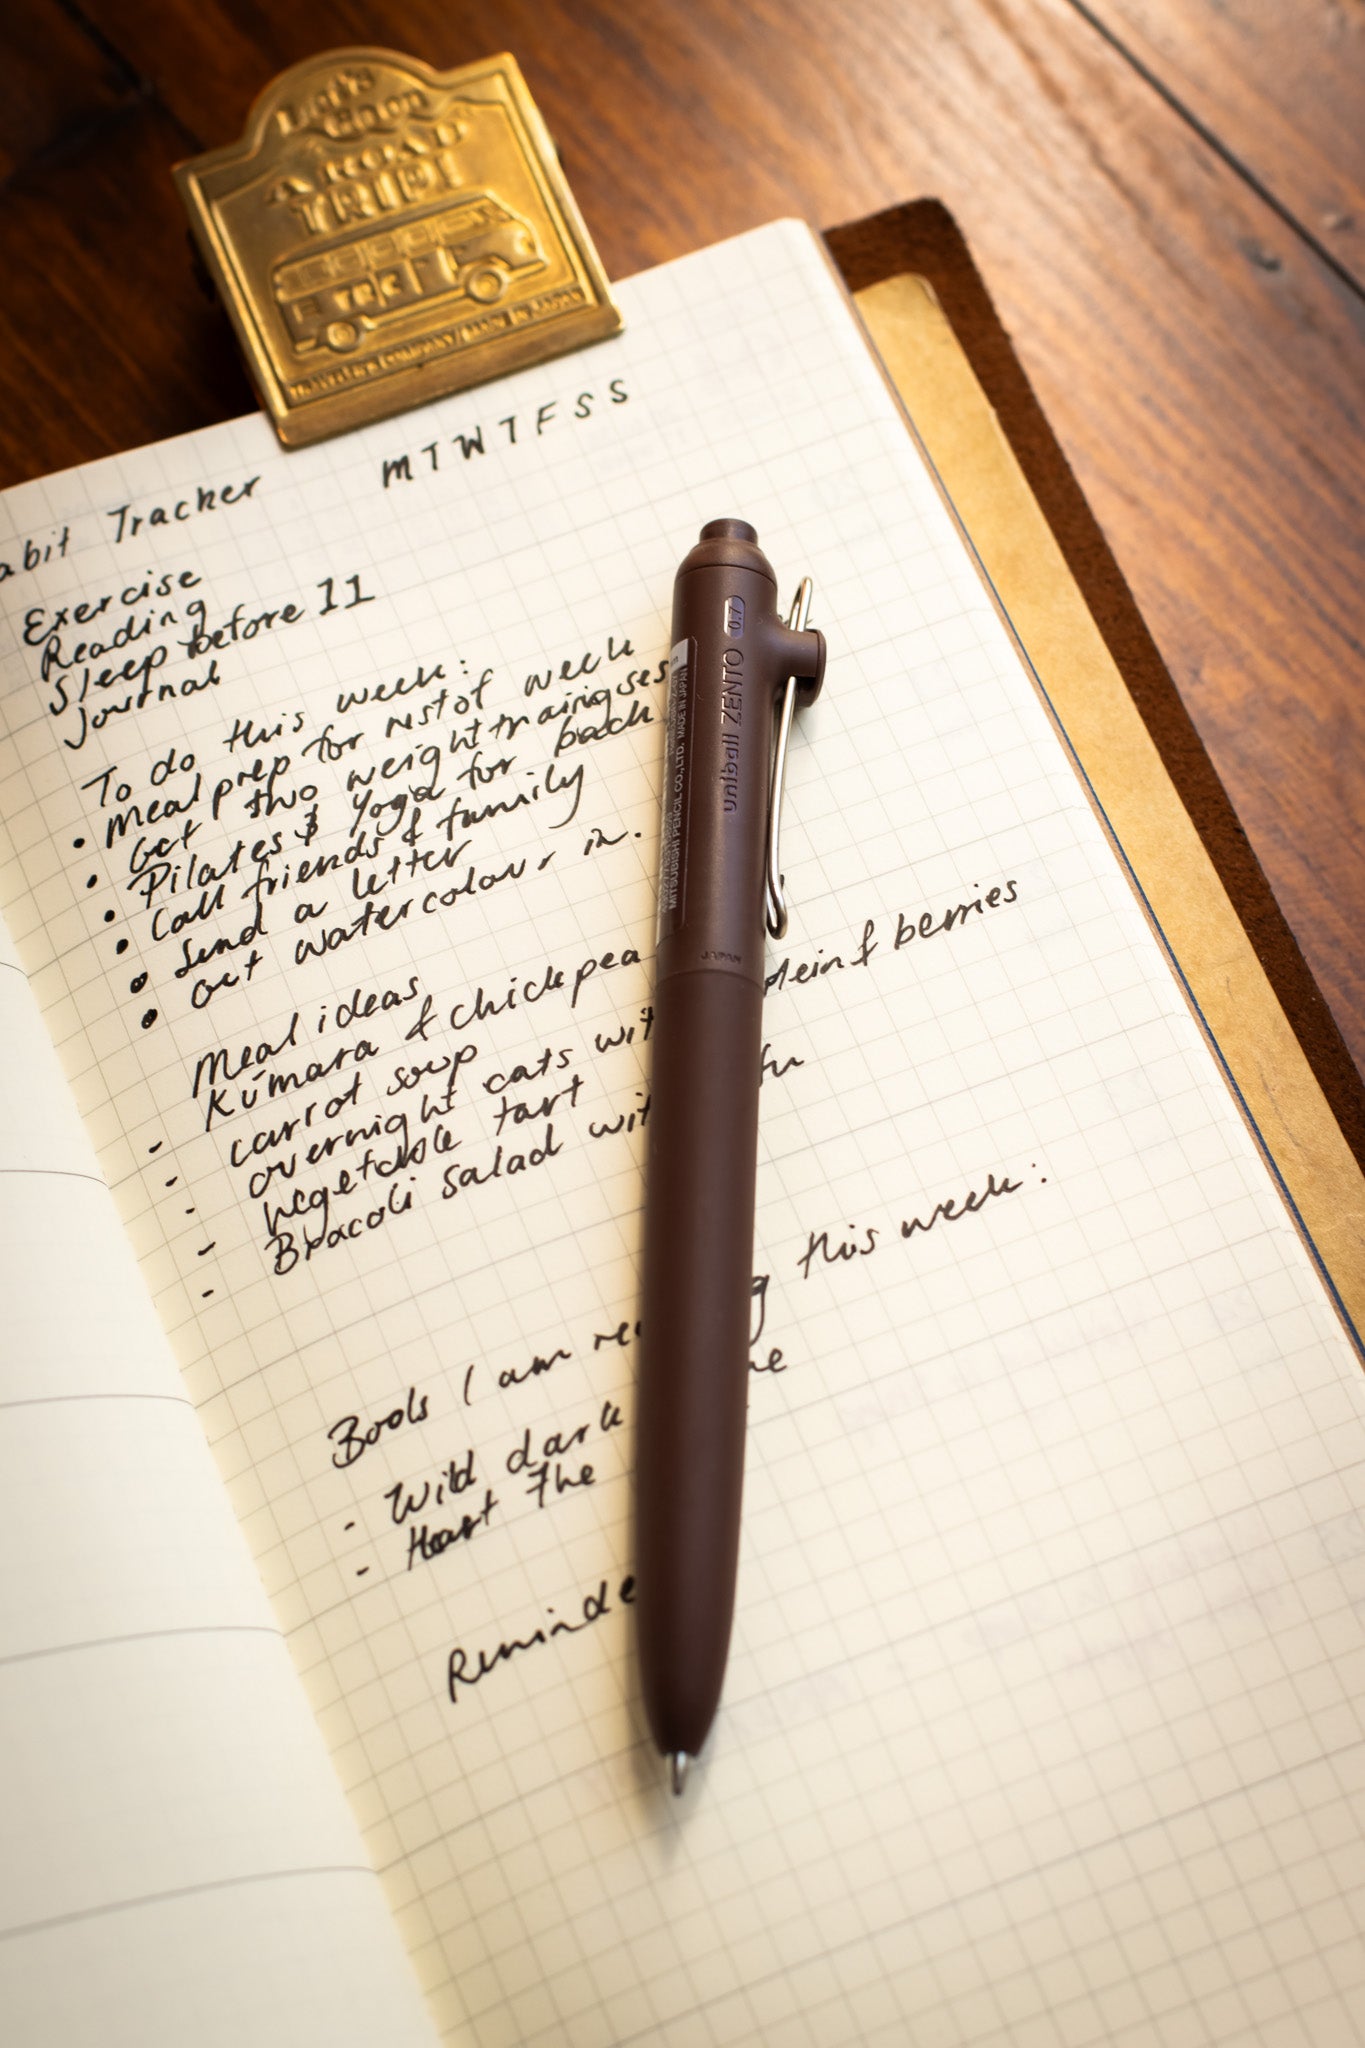 Let's
Go on
A ROAD
TRIP!
TRAVELER'S COMPANY / MADE IN JAPAN
abit Tracker M T W T F S S
Exercise
Reading
Sleep before 11
Journal
To do this week:
• Meal prep for rest of week
• Get two weight training ses
• Pilates & Yoga for back
• Call friends & family
• Send a letter
• Get watercolour in.
Meal ideas
- Kūmara & chickpea
- carrot soup
- overnight oats wit tein & berries
- vegetable tart
- Brocoli salad wit fu
Books I am re g this week:
- Wild dark ne
- Heart The
Reminde
uniball ZENTO 0.7
MITSUBISHI PENCIL CO.,LTD. MADE IN JAPAN
JAPAN